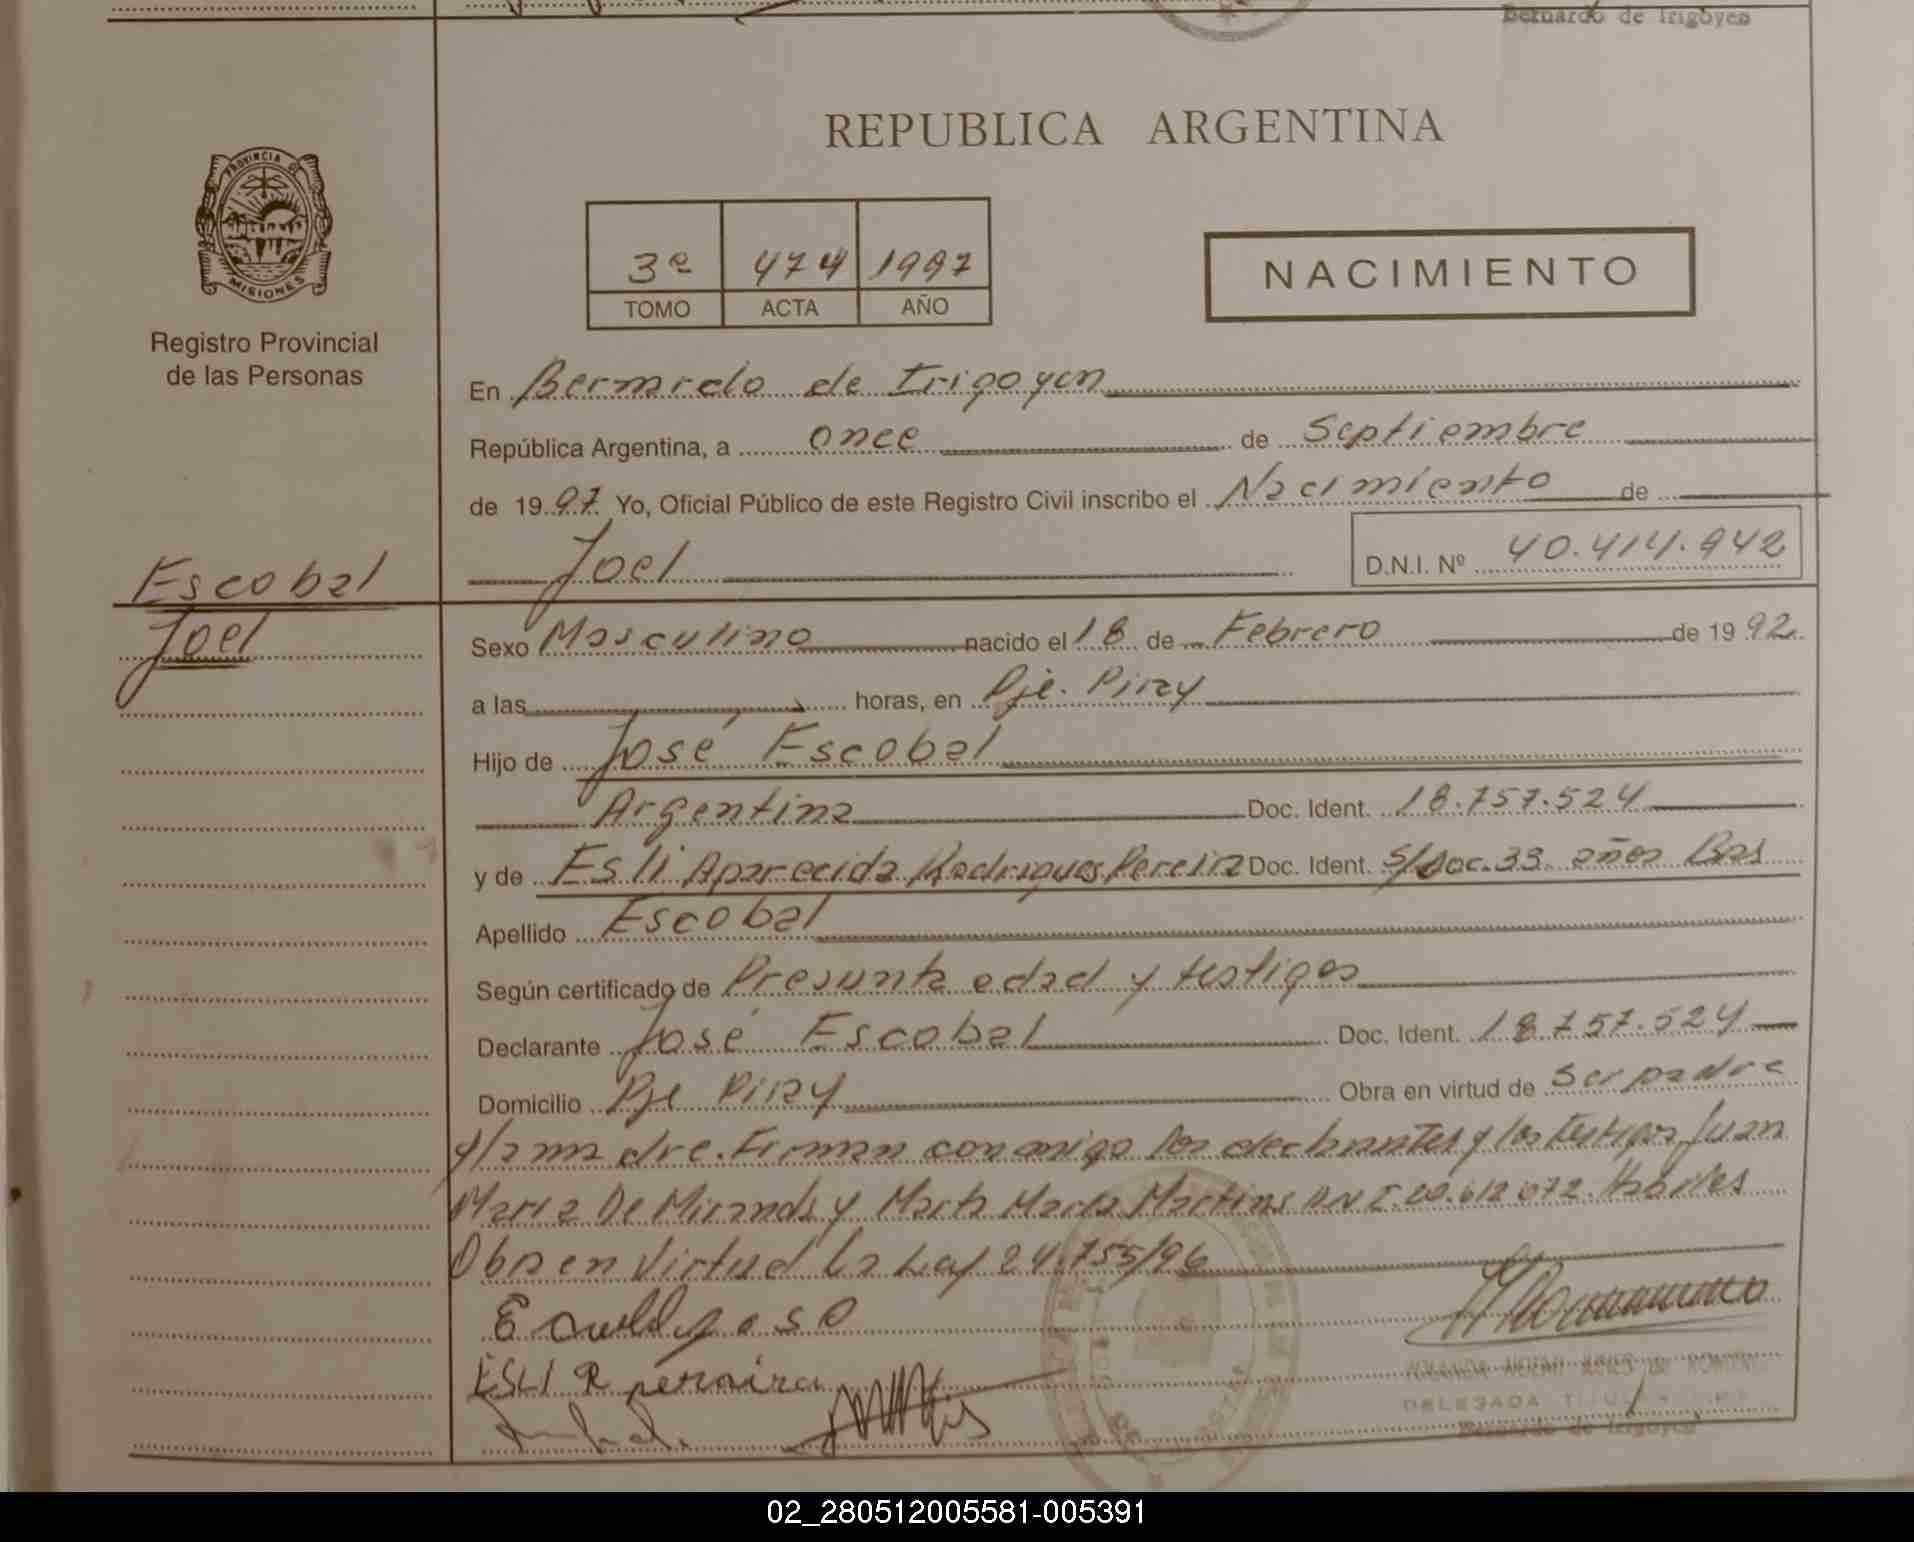 Bernardo de Irigoyen
REPUBLICA ARGENTINA
PROVINCIA DE
MISIONES
Registro Provincial
de las Personas
3º 474 1997
TOMO ACTA AÑO
NACIMIENTO
En Bernardo de Irigoyen
República Argentina, a once de Septiembre
de 1997 Yo, Oficial Público de este Registro Civil inscribo el Nacimiento de
Joel
D.N.I. Nº 40.414.942
Escobal
Joel
Sexo Masculino nacido el 18 de Febrero de 1992
a las horas, en Pje. Piray
Hijo de José Escobal
Argentina Doc. Ident. 18.757.524
y de Esli Aparecida Rodrigues Pereira Doc. Ident. S/Doc. 33 años Bras
Apellido Escobal
Según certificado de Presunta edad y testigos
Declarante José Escobal Doc. Ident. 18.757.524
Domicilio Pje Piray Obra en virtud de Ser padre
y la madre. Firman conmigo los declarantes y los testigos Juan
Maria De Miranda y Marta Maria Martins DNI 20.612.072. Habiles
Obra en Virtud la Ley 24.755/96
ESLI R pereira
DELEGADA TITULAR
Bernardo de Irigoyen
02_280512005581-005391